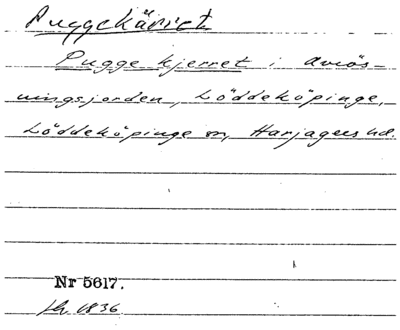 Puggekärret
Pugge kjerret i avrös-
ningsjorden, Löddeköpinge,
Löddeköpinge sn, Harjagers hd.
Nr 5617.
1836